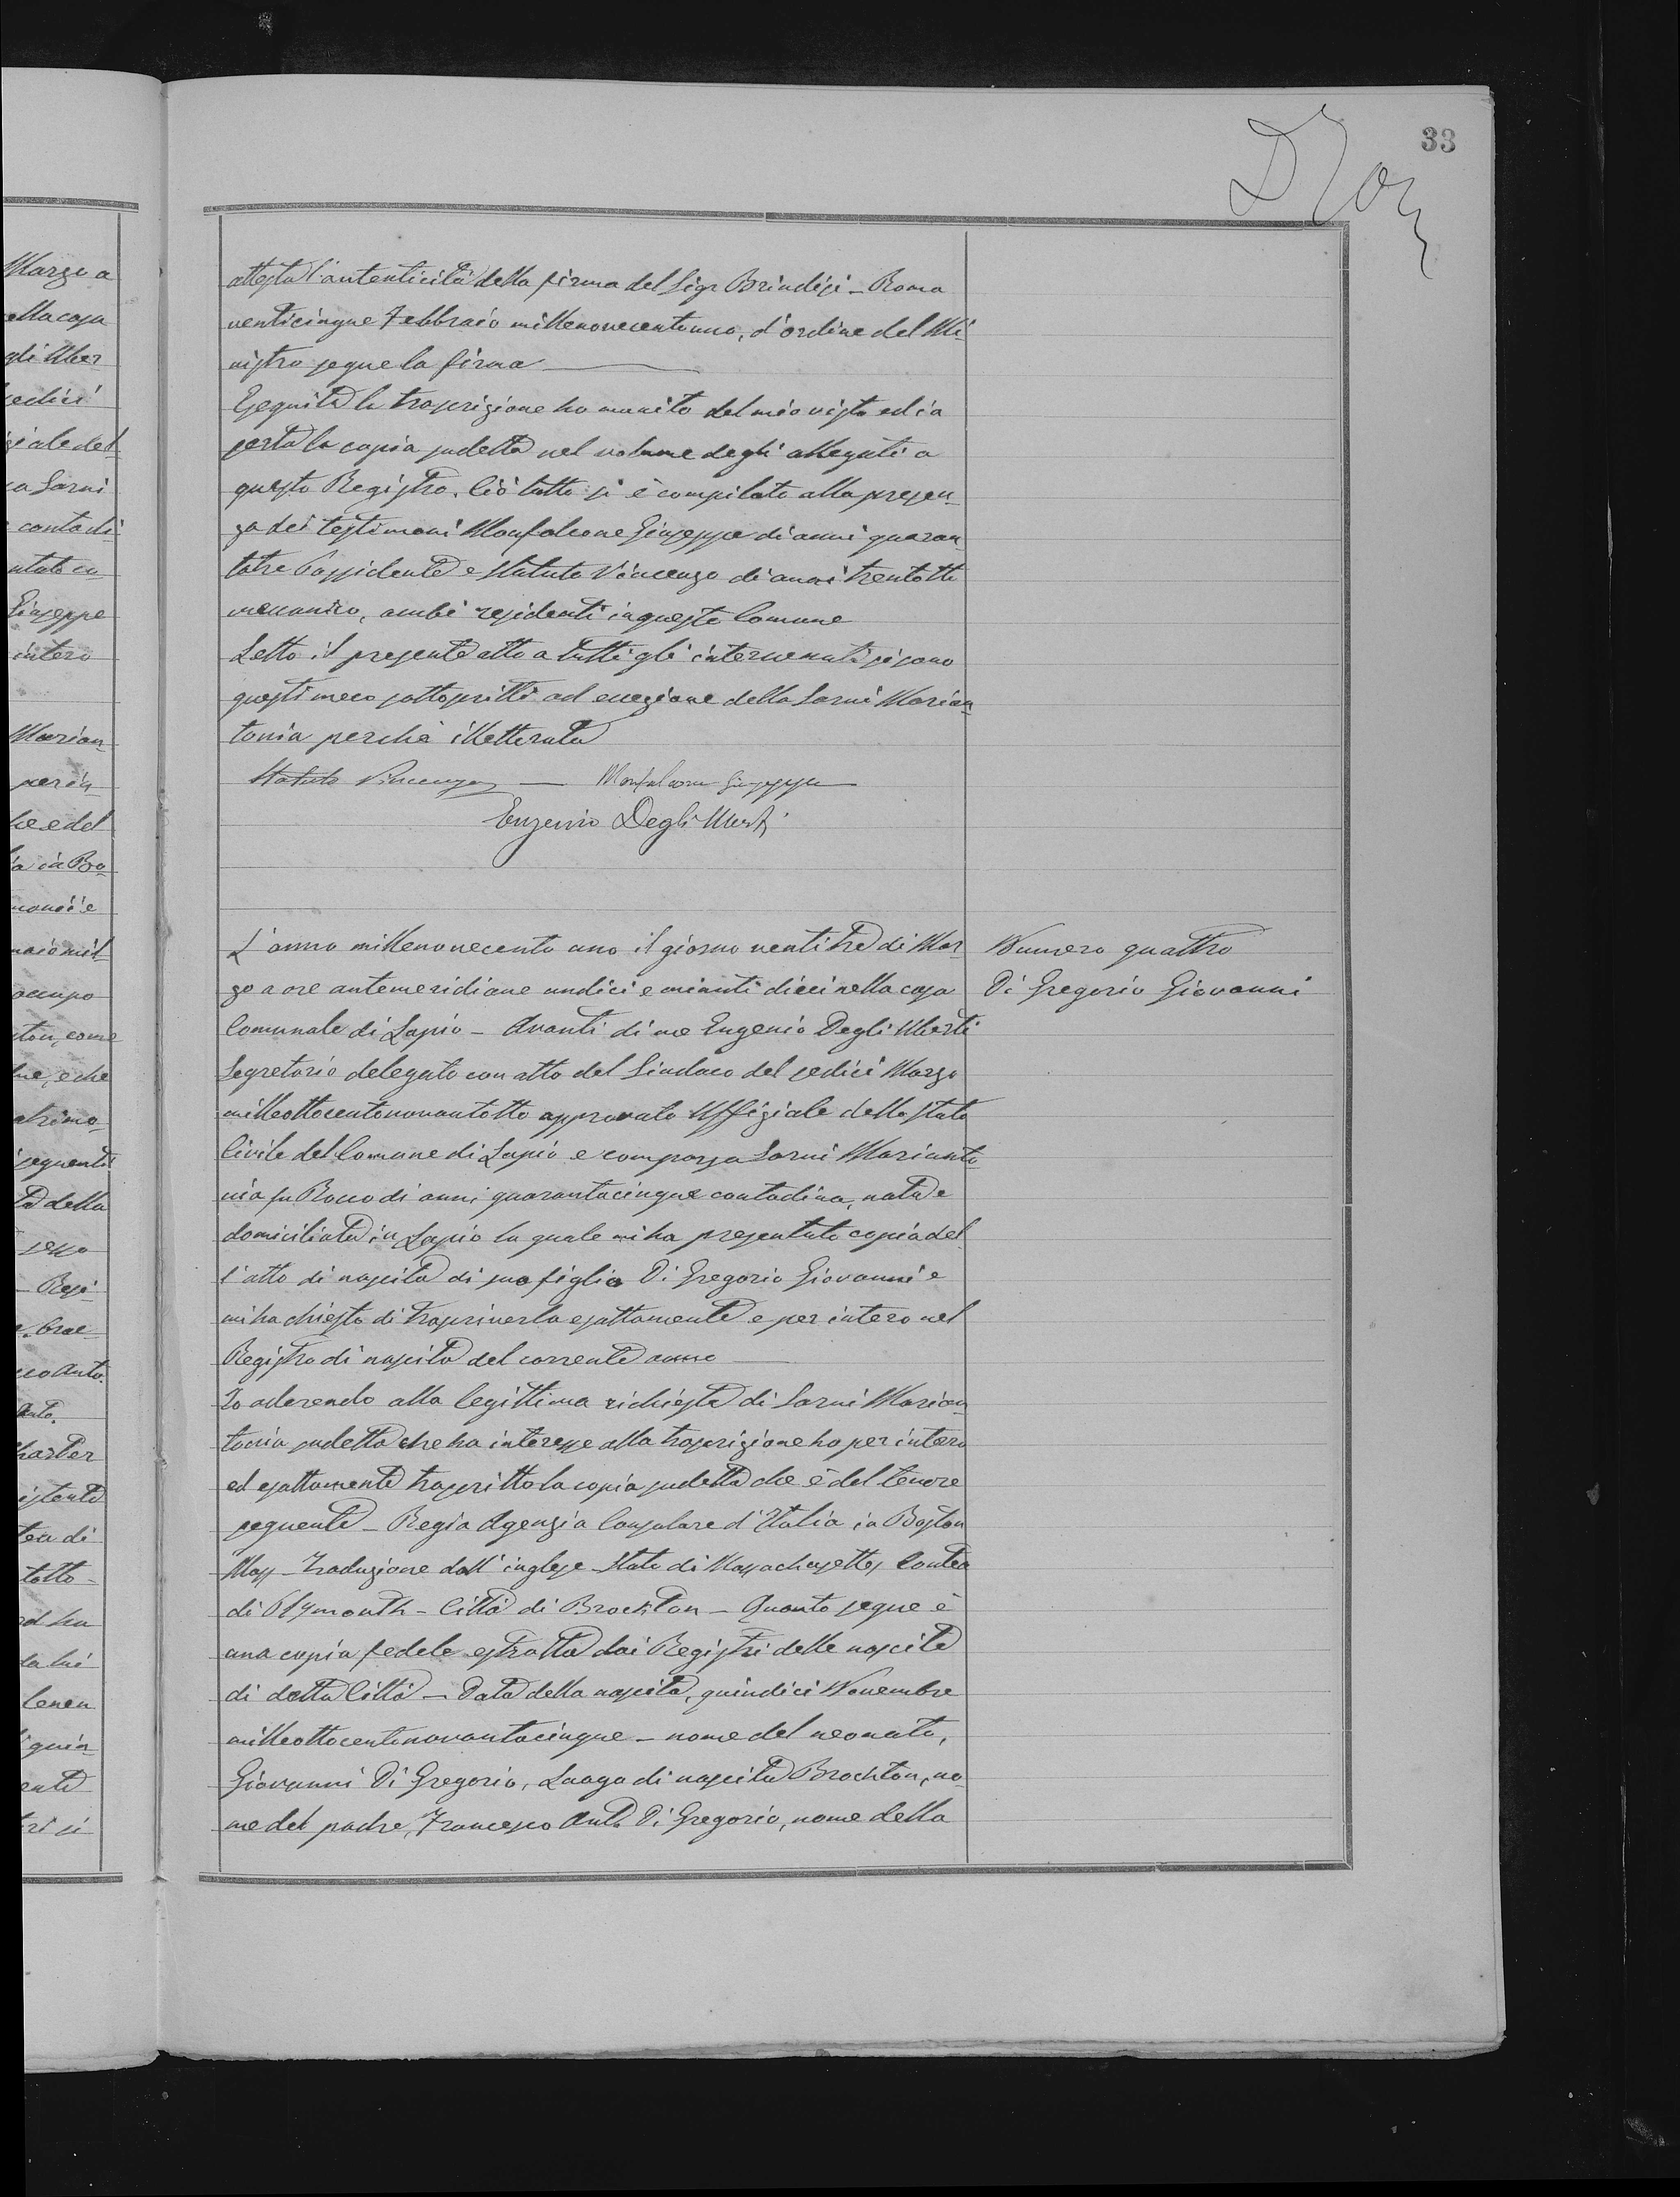 33
Marzo a
ella casa
gli Uber
sedici
ziale del
a Sarni
contadi
ntato co
Giuseppe
intero
Marian
per in
he del
a in Bro
mil
occupo
ton, come
ne, e che
atrimo
seguente
della
sesso
Resi
co Anto.
Anto.
Charter
istente
di
totto
ed ha
da lui
quin
ente
tri si
attesta l'autenticità della firma del Sigr Brindisi - Roma
venticinque Febbraio millenovecentouno, d'ordine del Mi
nistro segue la firma
Eseguita la trascrizione ho munito del mio visto ed in
serta la copia sudetta nel volume degli allegati a
questo Registro. Ciò tutto si è compilato alla presen
za dei testimoni Monfalcone Giuseppe di anni quaran
totre Possidente e Statuto Vincenzo di anni trentotto
meccanico, ambi residenti in questo Comune
Letto il presente atto a tutti gli intervenuti si sono
questi meco sottoscritti ad eccezione della Sarni Marian
tonia perchè illetterata
Statuto Vincenzo — Monfalcone Giuseppe
Eugenio Degli Uberti
L'anno millenovecento uno il giorno ventitre di Mar
zo a ore antemeridiane undici e minuti dieci nella casa
Comunale di Lapio - Avanti di me Eugenio Degli Uberti
Segretario delegato con atto del Sindaco del sedici Marzo
milleottocentonovantotto approvato Uffiziale dello Stato
Civile del Comune di Lapio è comparsa Sarni Marianto
nia fu Rocco di anni quarantacinque contadina, nata e
domiciliata in Lapio la quale mi ha presentato copia del
l'atto di nascita di suo figlio Di Gregorio Giovanni e
mi ha chiesto di trascriverla esattamente e per intero nel
Registro di nascita del corrente anno
Io aderendo alla legittima richiesta di Sarni Marian
tonia sudetta che ha interesse alla trascrizione ho per intero
ed esattamente trascritto la copia sudetta che è del tenore
seguente - Regia Agenzia Consolare d'Italia in Boston
Mass - Traduzione dall'inglese - Stato di Massachusettes Contea
di Plymouth - Città di Brockton - Quanto segue è
una copia fedele estratta dai Registri delle nascite
di detta Città - Data della nascita, quindici Novembre
milleottocentonovantacinque - nome del neonato,
Giovanni Di Gregorio, Luogo di nascita Brockton, no
me del padre, Francesco Anto Di Gregorio, nome della
Numero quattro
Di Gregorio Giovanni